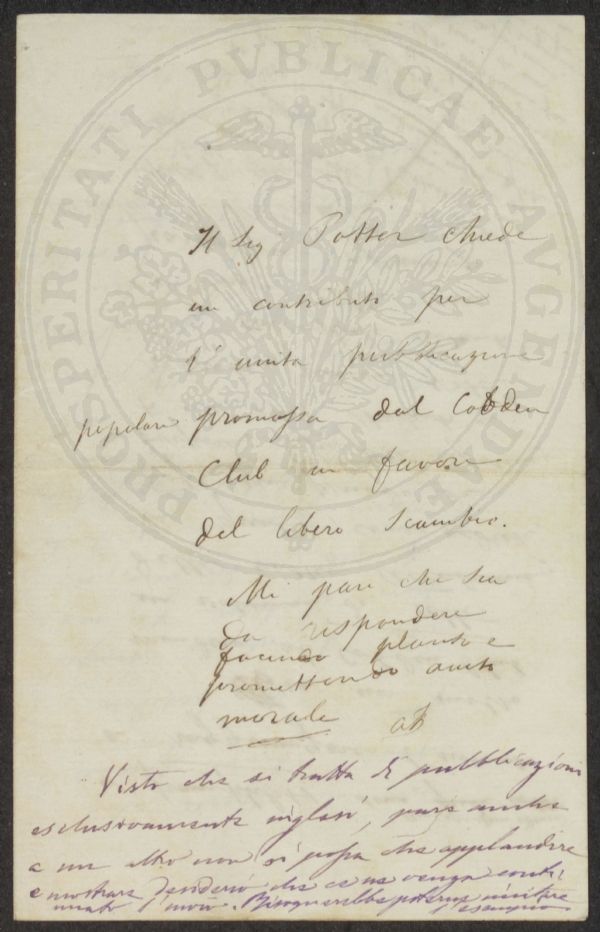 PROSPERITATI PVBLICAE AVGENDAE
Il Sig Potter chiede
un contributo per
l'unita pubblicazione
popolare promossa dal Cobden
Club in favore
del libero scambio.
Mi pare che sia
da rispondere
facendo plauso e
promettendo aiuto
morale
Visto che si tratta di pubblicazioni
esclusivamente inglesi, pare anche
a me altro non si possa che applaudire
e mostrare desiderio che ce ne venga conti
nuato l'invio. Bisognerebbe poterne imitare
l'esempio